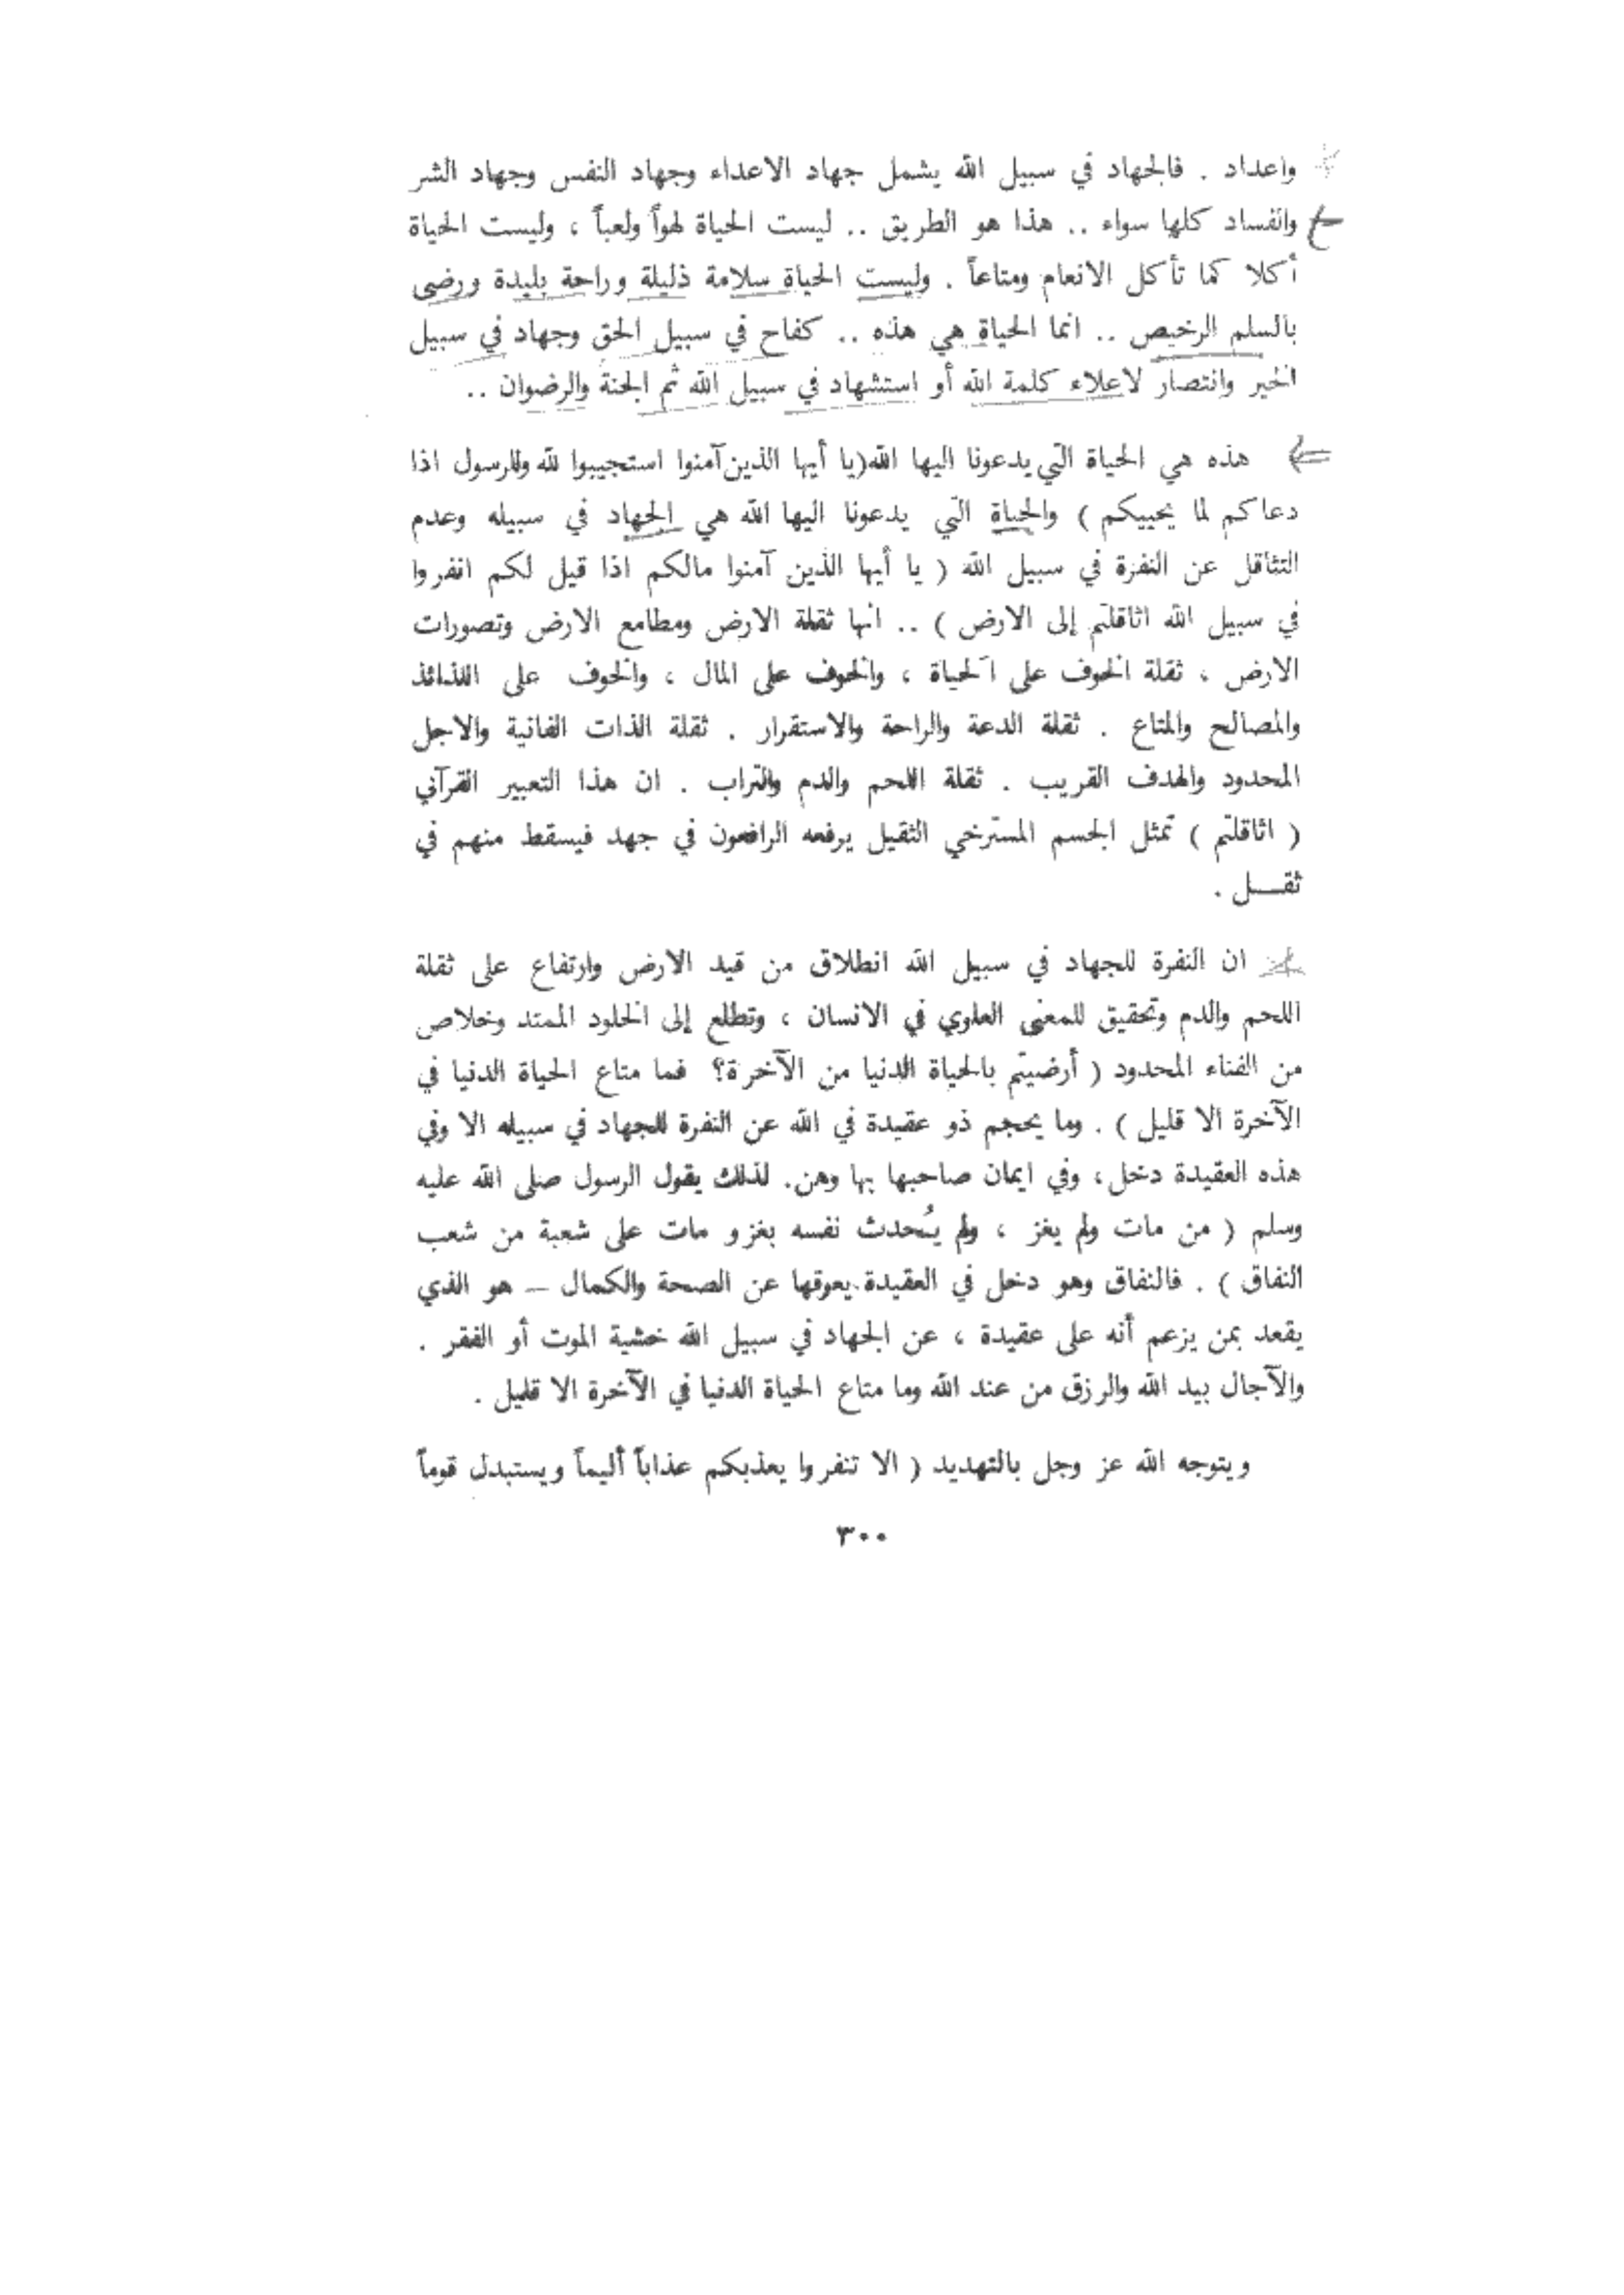 واعداد . فالجهاد في سبيل الله يشمل جهاد الاعداء وجهاد النفس وجهاد الشر
والفساد كلها سواء .. هذا هو الطريق .. ليست الحياة لهواً ولعباً ، وليست الحياة
أكلا كما تأكل الانعام ومتاعاً . وليست الحياة سلامة ذليلة وراحة بليدة ورضى
بالسلم الرخيص .. انما الحياة هي هذه .. كفاح في سبيل الحق وجهاد في سبيل
الخير وانتصار لاعلاء كلمة الله أو استشهاد في سبيل الله ثم الجنة والرضوان ..
هذه هي الحياة التي يدعونا اليها الله(يا أيها الذين آمنوا استجيبوا لله وللرسول اذا
دعاكم لما يحييكم ) والحياة التي يدعونا اليها الله هي الجهاد في سبيله وعدم
التثاقل عن النفرة في سبيل الله ( يا أيها الذين آمنوا مالكم اذا قيل لكم انفروا
في سبيل الله اثاقلتم إلى الارض ) .. انها ثقلة الارض ومطامع الارض وتصورات
الارض ، ثقلة الخوف على الحياة ، والخوف على المال ، والخوف على اللذائذ
والمصالح والمتاع . ثقلة الدعة والراحة والاستقرار . ثقلة الذات الفانية والاجل
المحدود والهدف القريب . ثقلة اللحم والدم والتراب . ان هذا التعبير القرآني
( اثاقلتم ) تمثل الجسم المسترخي الثقيل يرفعه الرافعون في جهد فيسقط منهم في
ثقـــل .
ان النفرة للجهاد في سبيل الله انطلاق من قيد الارض وارتفاع على ثقلة
اللحم والدم وتحقيق للمعنى العلوي في الانسان ، وتطلع إلى الخلود الممتد وخلاص
من الفناء المحدود ( أرضيتم بالحياة الدنيا من الآخرة؟ فما متاع الحياة الدنيا في
الآخرة الا قليل ) . وما يحجم ذو عقيدة في الله عن النفرة للجهاد في سبيله الا وفي
هذه العقيدة دخل ، وفي ايمان صاحبها بها وهن. لذلك يقول الرسول صلى الله عليه
وسلم ( من مات ولم يغز ، ولم يُحدث نفسه بغزو مات على شعبة من شعب
النفاق ) . فالنفاق وهو دخل في العقيدة يعوقها عن الصحة والكمال — هو الذي
يقعد بمن يزعم أنه على عقيدة ، عن الجهاد في سبيل الله خشية الموت أو الفقر .
والآجال بيد الله والرزق من عند الله وما متاع الحياة الدنيا في الآخرة الا قليل .
ويتوجه الله عز وجل بالتهديد ( الا تنفروا يعذبكم عذاباً أليماً ويستبدل قوماً
٣٠٠